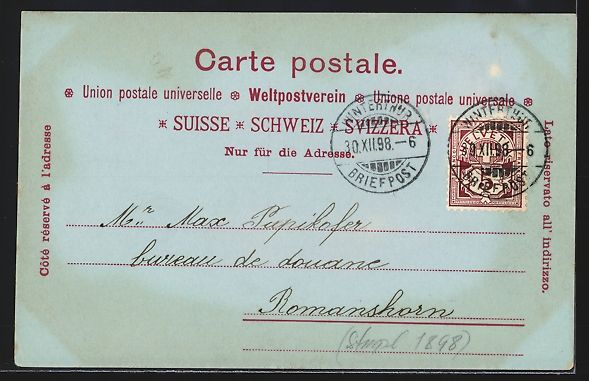 Carte postale.
Union postale universelle ❊ Weltpostverein ❊ Unione postale universale
* SUISSE * SCHWEIZ * SVIZZERA *
Nur für die Adresse.
Côté réservé à l'adresse
Lato riservato all' indirizzo.
WINTERTHUR
30.XII.98.–6
BRIEFPOST
WINTERTHUR
30.XII.98.–6
BRIEFPOST
Mr. Max
bureau de douane
Romanshorn
1898)